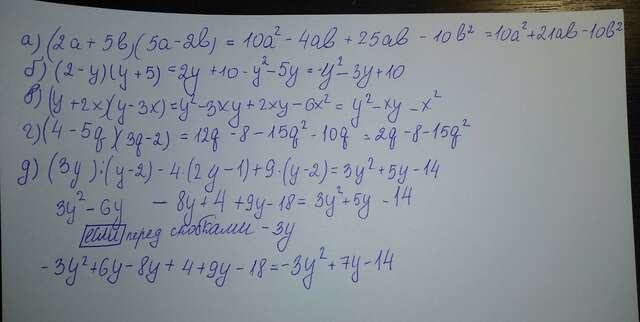 а) (2a + 5в)(5a - 2в) = 10a² - 4aв + 25aв - 10в² = 10a² + 21aв - 10в²
б) (2 - y)(y + 5) = 2y + 10 - y² - 5y = -y² - 3y + 10
в) (y + 2x)(y - 3x) = y² - 3xy + 2xy - 6x² = y² - xy - x²
г) (4 - 5q)(3q - 2) = 12q - 8 - 15q² - 10q = 2q - 8 - 15q²
д) (3y) · (y - 2) - 4 · (2y - 1) + 9 · (y - 2) = 3y² + 5y - 14
3y² - 6y - 8y + 4 + 9y - 18 = 3y² + 5y - 14
если перед скобками - 3y
- 3y² + 6y - 8y + 4 + 9y - 18 = -3y² + 7y - 14